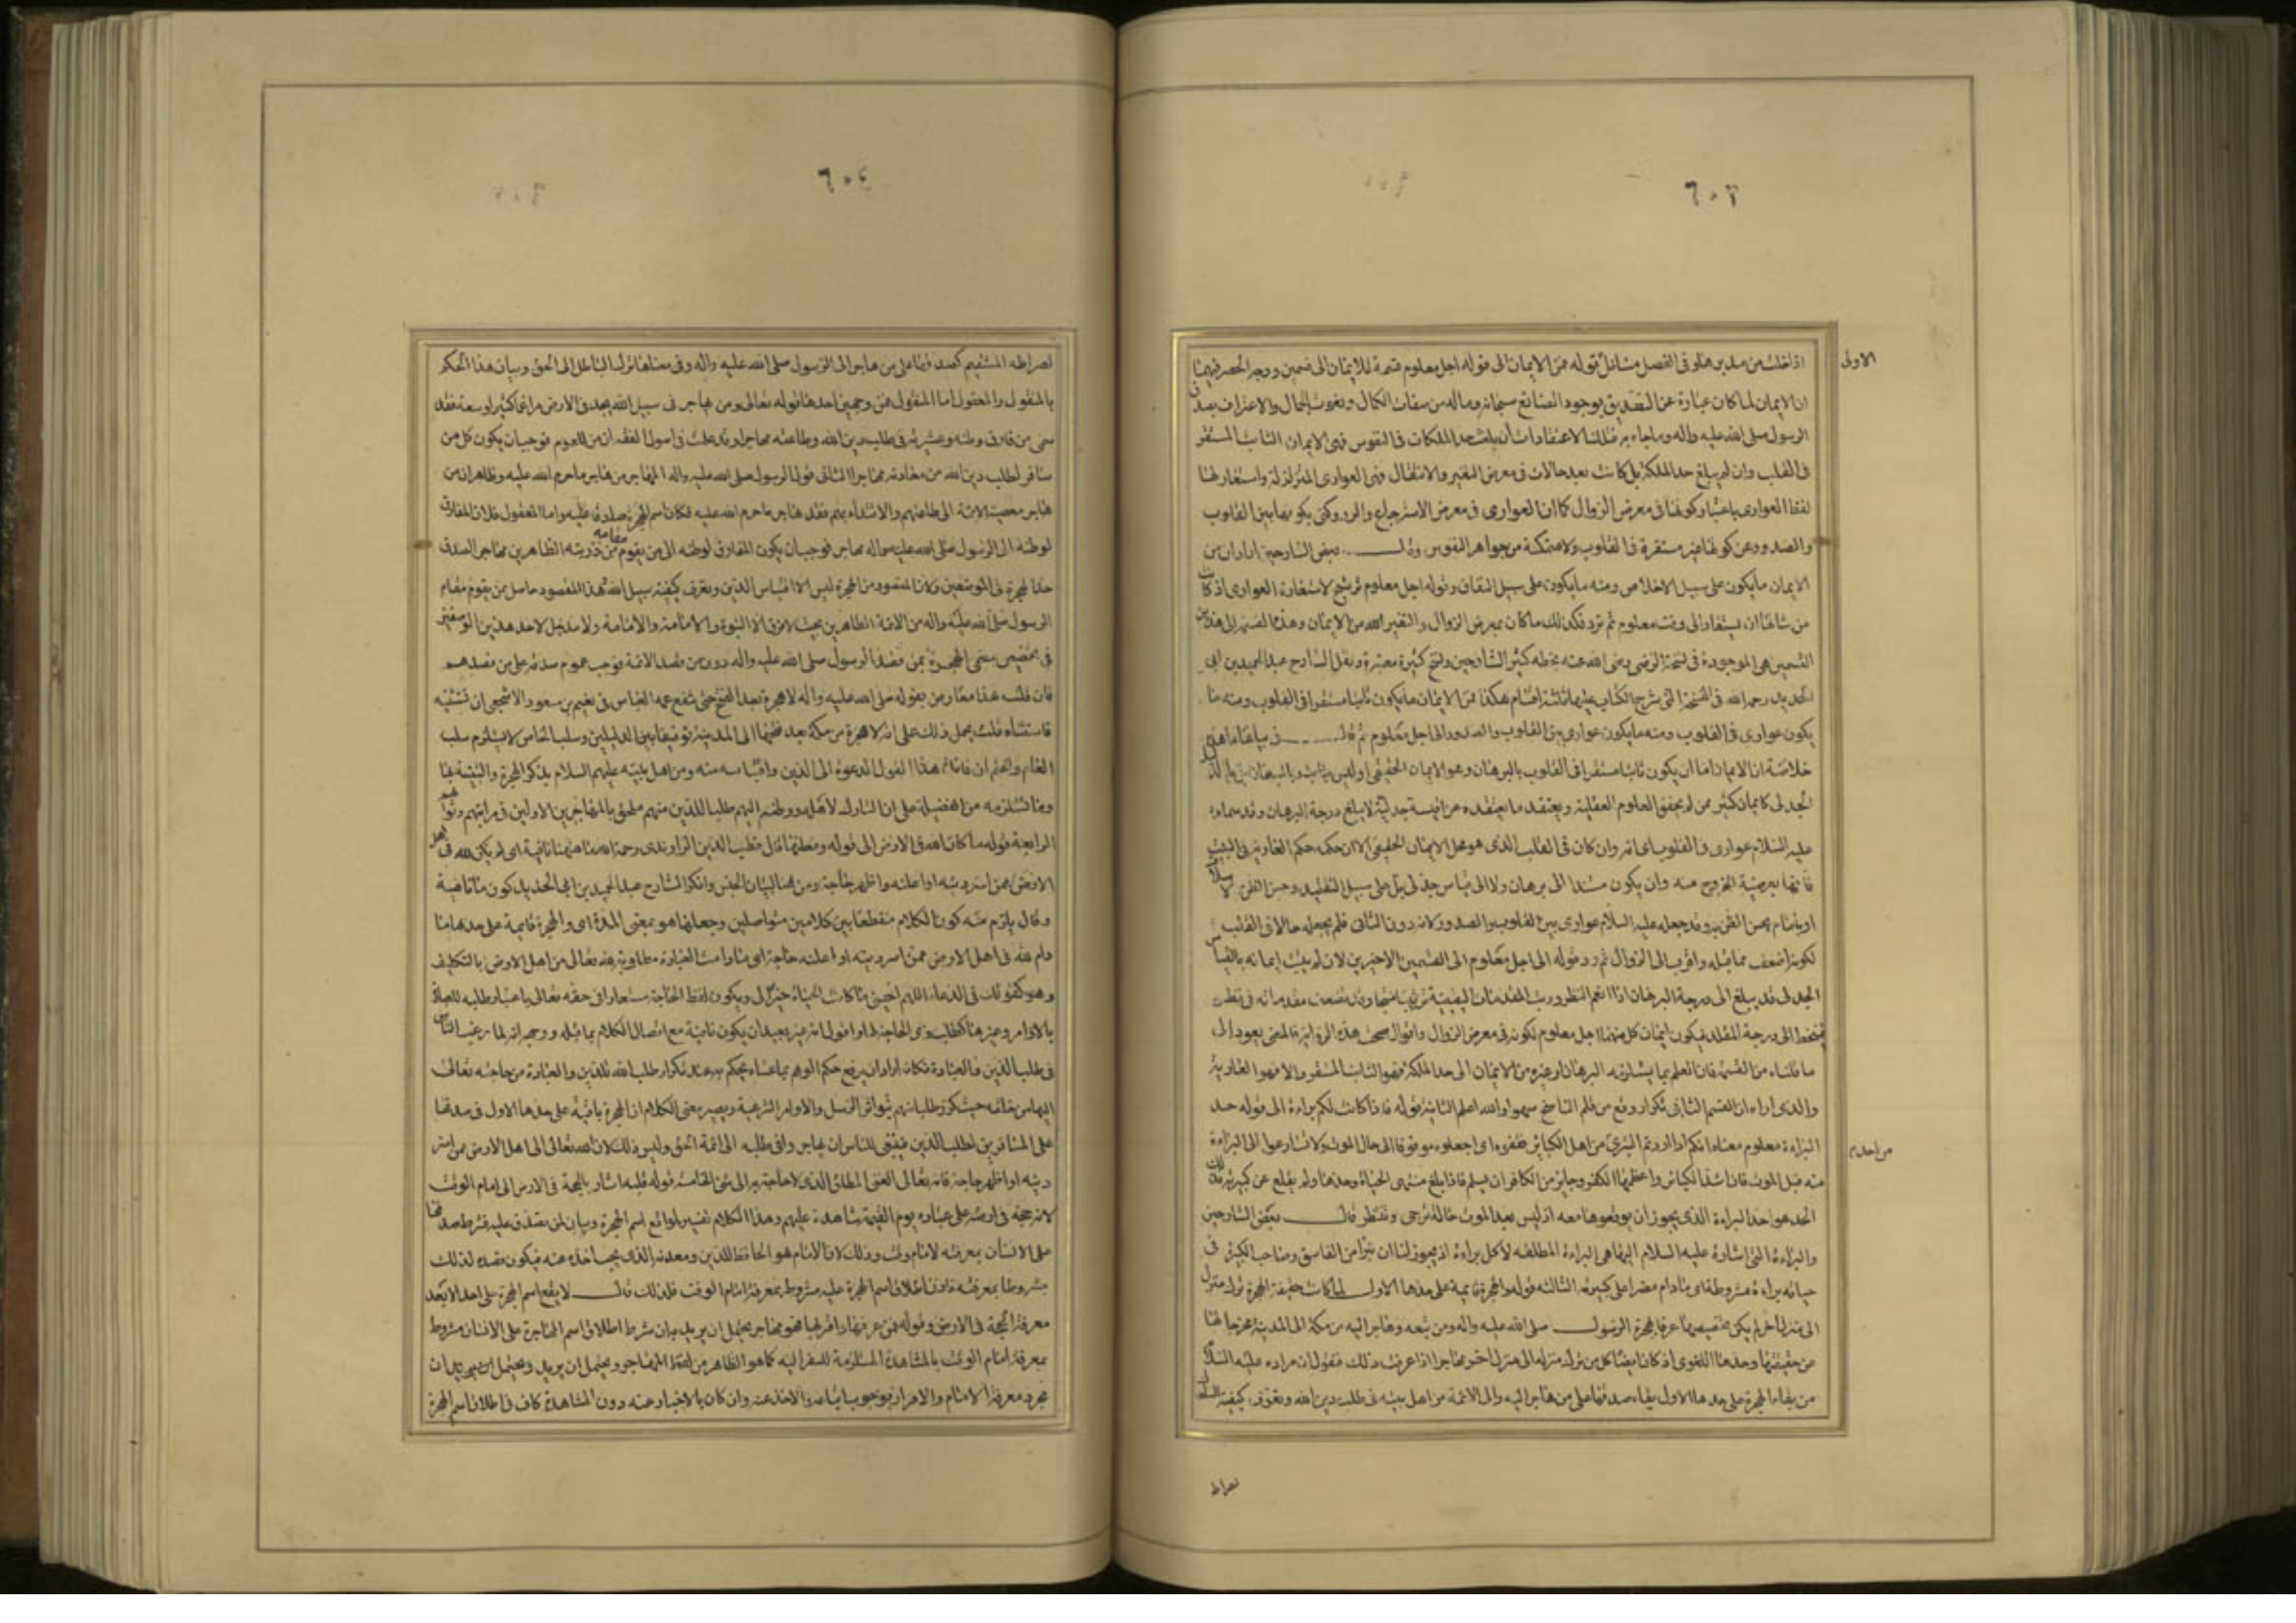 ٦٠٣
الاولى
اذا قلت من هذا فى الفصل مسائل قوله فمن الايمان الى قوله اجل معلوم قسمة للايمان الى قسمين ووجه الحصر فيهما
ان الايمان لما كان عبارة عن التصديق بوجود الصانع سبحانه وماله من صفات الكمال ونعوت الجلال والاعتراف بصدق
الرسول صلى الله عليه واله وما جاء به فتلك الاعتقادات ان بلغت حد الملكات فى النفوس فهى الايمان الثابت المستقر
فى القلب وان لم يبلغ حد الملكة بل كانت بعد حالات فى معرض التغير والانتقال فهى العوارى المتزلزلة واستعار لها
لفظ العوارى باعتبار كونها فى معرض الزوال كما ان العوارى فى معرض الاسترجاع والرد وكنى بكونها بين القلوب
والصدور عن كونها غير مستقرة فى القلوب ولا متمكنة من جواهر النفوس وقال بعض الشارحين اراد ان من
الايمان ما يكون على سبيل الاخلاص ومنه ما يكون على سبيل النفاق وقوله اجل معلوم ترشيح لاستعارة العوارى اذ كانت
من شانها ان يستعار الى وقت معلوم ثم ترد فكذلك ما كان بمعرض الزوال والتغير من الايمان وهذه القسمة الى هذين
القسمين هى الموجودة فى نسخة الرضى رضى الله عنه بخطه كثير الشارحين ونسخ كثيرة معتبرة ونقل الشارح عبد الحميد بن ابى
الحديد رحمه الله فى النسخة التى شرح الكتاب عليها ثلثة اقسام هكذا فمن الايمان ما يكون ثابتا مستقرا فى القلوب ومنه ما
يكون عوارى فى القلوب ومنه ما يكون عوارى بين القلوب والصدور الى اجل معلوم ثم قال فى بيانها ما هذه
خلاصته ان الايمان اما ان يكون ثابتا مستقرا فى القلوب بالبرهان وهو الايمان الحقيقى او ليس بثابت بالبرهان بل بالدليل
الجدلى كايمان كثير ممن لم يحقق العلوم العقلية ويعتقد ما يعتقده عن اقيسة جدلية لا يبلغ درجة البرهان وقد سماه
عليه السلام عوارى فى القلوب اى انه وان كان فى القلب الذى هو محل الايمان الحقيقى الا ان حكمه حكم العارية فى البيت
فانها بعرضة الخروج منه وان يكون مستندا الى برهان ولا الى قياس جدلى بل على سبيل التقليد وحسن الظن بالاسلاف
او بامام يحسن الظن به وقد جعله عليه السلام عوارى بين القلوب والصدور لانه دون الثانى فلم يجعله حالا فى القلب
لكونه اضعف مما قبله واقرب الى الزوال ثم رد قوله الى اجل معلوم الى القسمين الاخيرين لان لم يثبت ايمانه بالقياس
الجدلى قد يبلغ الى درجة البرهان اذا انعم النظر ورتب المقدمات اليقينية ترتيبا منتجا وقد يضعف مقدماته فى نظره
فينحط الى درجة المقلد فيكون ايمان كل منهما الى اجل معلوم لكونه فى معرض الزوال واقول ان صحت هذه الرواية فالمعنى يعود الى
ما قلناه من القسمة فان العلم بما يستلزمه البرهان او غيره من الايمان الى حد الملكة فهو الثابت المستقر والا فهو العارية
والذى اراه ان القسم الثانى تكرار وقع من قلم الناسخ سهوا والله اعلم الثانية قوله فاذا كانت لكم براءة الى قوله حد
البراءة معلوم معناه انكم اذا اردتم التبرى من اهل الكبائر فقفوه اى اجعلوه موقوفا الى حال الموت ولا تسارعوا الى البراءة
من احد م
منه قبل الموت فان اشد الكبائر واعظمها الكفر وجايز من الكافر ان يسلم فاذا بلغ منتهى الحياة وحدها ولم يقلع عن كبيرته فذلك
الحد هو احد البراءة الذى يجوز ان يوقعوها معه اذ ليس بعد الموت حالة ترجى وتنتظر قال بعض الشارحين
والبراءة التى اشار عليه السلام اليها هى البراءة المطلقة لا كل براءة اذ يجوز لنا ان نبرأ من الفاسق وصاحب الكبيرة فى
حياته براءة مشروطة اى ما دام مصرا على كبيرته الثالثة قوله والهجرة قايمة على حدها الاول لما كانت حقيقة الهجرة ترك منزل
الى منزل اخر لم يكن تخصيصها عرفا بهجرة الرسول صلى الله عليه واله ومن تبعه وهاجر اليه من مكة الى المدينة مخرجا لها
من حقيقتها وحدها اللغوى اذ كان ايضا كل من ترك منزله الى منزل اخر مهاجرا اذا عرفت ذلك فنقول ان مراده عليه السلام
من بقاء الهجرة على حدها الاول بقاء صدقها على من هاجر اليه والى الائمة من اهل بيته فى طلب دين الله وتعرف كيفية السلوك
لصراط
٦٠٤
لصراطه المستقيم كصدقها على من هاجر الى الرسول صلى الله عليه واله وفى معناها ترك الباطل الى الحق وبيان هذا الحكم
بالمنقول والمعقول اما المنقول فمن وجهين احدهما قوله تعالى ومن يهاجر فى سبيل الله يجد فى الارض مراغما كثيرا وسعة فقد
سمى من فارق وطنه وعشيرته فى طلب دين الله وطاعته مهاجرا وقد علمت فى اصول الفقه ان من للعموم فوجب ان يكون كل من
سافر لطلب دين الله من معادنه مهاجرا الثانى قول الرسول صلى الله عليه واله المهاجر من هاجر ما حرم الله عليه وظاهر ان من
هاجر معصية الائمة الى طاعتهم والاقتداء بهم فقد هاجر ما حرم الله عليه فكان اسم الهجرة صادقا عليه واما المعقول فلان المفارق
لوطنه الى الرسول صلى الله عليه واله مهاجر فوجب ان يكون المفارق لوطنه الى من يقوم مقامه من ذريته الطاهرين مهاجر الصدق
حد الهجرة فى الموضعين ولان المقصود من الهجرة ليس الا اقتباس الدين وتعرف كيفية سبيل الله وهذا المقصود حاصل ممن يقوم مقام
الرسول صلى الله عليه واله من الائمة الطاهرين بحيث لا فرق الا النبوة والامامة ولا مدخل لاحد هذين الوصفين
فى تخصيص مسمى الهجرة بمن قصد الرسول صلى الله عليه واله دون من قصد الائمة فوجب عموم صدقه على من قصدهم
فان قلت هذا معارض بقوله صلى الله عليه واله لا هجرة بعد الفتح حتى شفع عمه العباس فى نعيم بن مسعود الاشجعى ان يستثنيه
فاستثناه قلت يحمل ذلك على انه لا هجرة من مكة بعد فتحها الى المدينة توفيقا بين الدليلين وسلب الخاص لا يستلزم سلب
العام واعلم ان فائدة هذا القول الدعوة الى الدين واقتباسه منه ومن اهل بيته عليهم السلام بذكر الهجرة والتنبيه بها
وما تستلزمه من الفضيلة على ان التارك لاهله ووطنه اليهم طلبا للدين منهم ملحق بالمهاجرين الاولين فى مراتبهم وثوابهم
الرابعة قوله ما كان لله فى الارض الى قوله ومعلنها قال قطب الدين الراوندى رحمة الله ما هيهنا نافية اى لم يكن لله فى اهل
الارض ممن اسر دينه او اعلنه واظهر حاجة ومن هنا لبيان الجنس وانكر الشارح عبد الحميد بن ابى الحديد كون ما نافية
وقال يلزم منه كون الكلام منقطعا بين كلامين متواصلين وجعلها هو بمعنى المدة اى والهجرة قايمة على حدها ما
دام لله فى اهل الارض ممن اسر دينه او اعلنه حاجة اى ما دامت العبادة مطلوبة لله تعالى من اهل الارض بالتكليف
وهو كقولك فى الدعاء اللهم احينى ما كانت الحياة خيرا لى ويكون لفظ الحاجة مستعارا فى حقه تعالى باعتبار طلبه للعبادة
بالاوامر وغيرها كطلب ذى الحاجة لها واقول انه غير بعيد ان يكون نافية مع اتصال الكلام بما قبله ووجهه انه لما رغب الناس
فى طلب الدين والعبادة فكانه اراد ان يرفع حكم الوهم بما عساه يحكم به عند تكرار طلب الله للدين والعبادة من حاجته تعالى
اليها من خلقه حيث كرر طلبها منهم بتواتر الرسل والاوامر الشرعية ويصير معنى الكلام ان الهجرة باقية على حدها الاول فى صدقها
على المسافرين لطلب الدين فينبغى للناس ان يهاجروا فى طلبه الى ائمة الحق وليس ذلك لان لله تعالى الى اهل الارض ممن اسر
دينه او اظهر حاجة فانه تعالى الغنى المطلق الذى لا حاجة به الى شئ الخامسة قوله فلبه اشار بالحجة فى الارض الى امام الوقت
لانه حجة فى ارضه على عباده يوم القيمة شاهدة عليهم وهذا الكلام تفسير لواقع اسم الهجرة وبيان لمن يصدق عليه فشرط صدقها
على الانسان بمعرفته لامام وقته وذلك لان الامام هو الحافظ للدين ومعدنه الذى يجب اخذه عنه فيكون قصده لذلك
مشروطا بمعرفته فاذن اطلاق اسم الهجرة عليه مشروط بمعرفة امام الوقت فلذلك قال لا يقع اسم الهجرة على احد الا بعد
معرفة الحجة فى الارض وقوله فمن عرفها واقر بها فهو مهاجر يحتمل ان يريد به ان شرط اطلاق اسم المهاجرة على الانسان مشروط
بمعرفة امام الوقت بالمشاهدة المستلزمة للسفر اليه كما هو الظاهر من لفظ المهاجر ويحتمل ان يريد ان
مجرد معرفة الامام والاقرار بوجوب اتباعه والاخذ عنه وان كان بالاخبار عنه دون المشاهدة كاف فى اطلاق اسم الهجرة